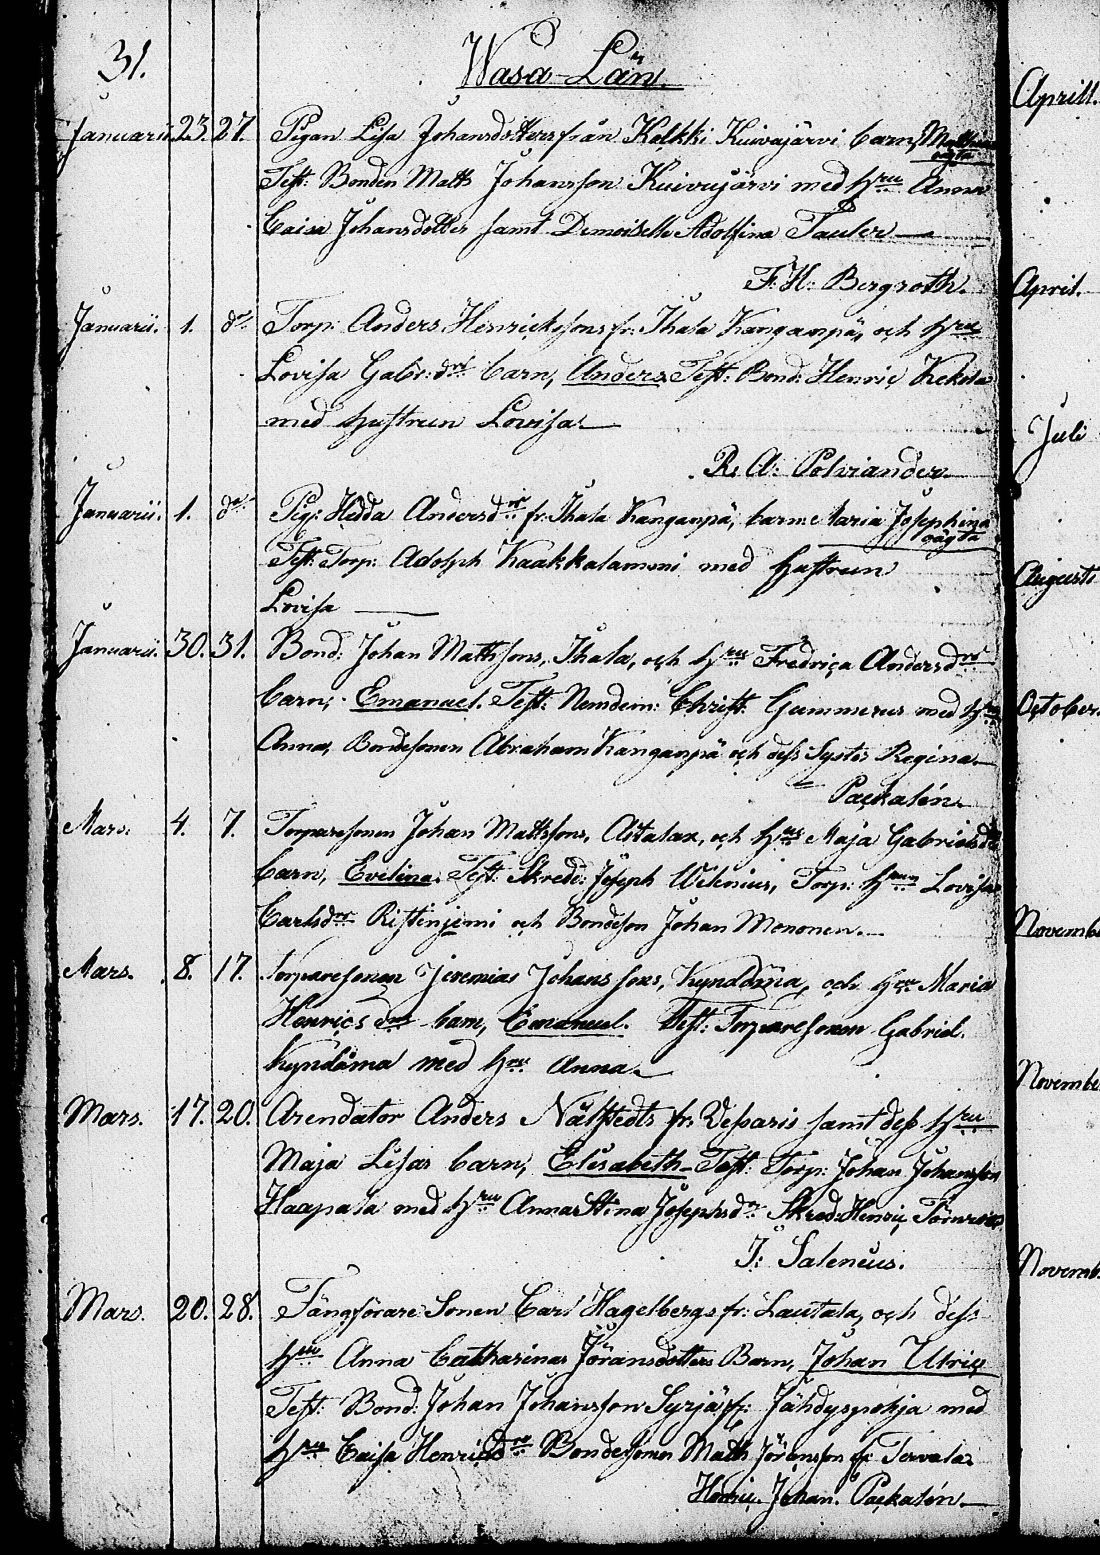 31.
Wasa-Län.
Januarii. 23. 27. Pigan Lisa Johansdotters från Kelkki Kuivajärvi barn, Mathias
oägta
Test: Bonden Matts Johansson Kuivajärvi med hru Anna
Caisa Johansdotter samt Demoiselle Adolfina Tauler
F: H: Bergroth.
Januarii. 1. do Torp: Anders Henrickssons fr: Ikala Kanganpä, och hru
Lovisa Gabr:dr barn, Anders. Test: Bond: Henric Kekola
med hustrun Lovisa.
R: A: Polviander
Januarii. 1. do Pig: Hedda Andersdr fr: Ikala Kanganpä, barn Maria Josephina
oägta
Test: Torp: Adolph Kaakkalammi med hustrun
Lovisa
Januarii. 30. 31. Bond: Johan Mathssons, Ikala, och hru Fredrica Andersdrs
barn, Emanuel. Test: Nemdem: Christ: Gummerus med hru
Anna, Bondesonen Abraham Kanganpä och dess Syster Regina.
Packalén.
Mars. 4. 7. Torparesonen Johan Mattssons, Astalax, och hrus Maja Gabrielsdrs
barn, Evelina. Test: Skredd: Joseph Wilenius, Torp: hrun Lovisa
Carlsdr Ristinjemi och Bondeson Johan Mononen.
Mars. 8. 17. Torparesonen Jeremias Johanssons, Kynddina, och hru Maria
Henricsdrs barn, Emanuel. Test: Torparesonen Gabriel
Kyndäma med hru Anna.
Mars. 17. 20. Arendator Anders Nätstedts fr: Wesparis samt dess hru
Maja Lisas barn, Elisabeth. Test: Torp: Johan Johansson
Haapala med hru Anna Stina Josephsdr Skredd: Henric Törnroos.
J: Salenius.
Mars. 20. 28. Fångförare Sonen Carl Hagelbergs fr: Lautala, och dess
hru Anna Catharinas Jöransdotters Barn, Johan Ulric
Test: Bond: Johan Johansson Syrjä fr: Jähdyspohja med
hru Caisa Henricsdr Bondesonen Math Jöransson fr: Tervala.
Henric Johan Packalén.
Aprill.
April.
Juli
Augusti
October.
Novembe
Novembe
Novemb